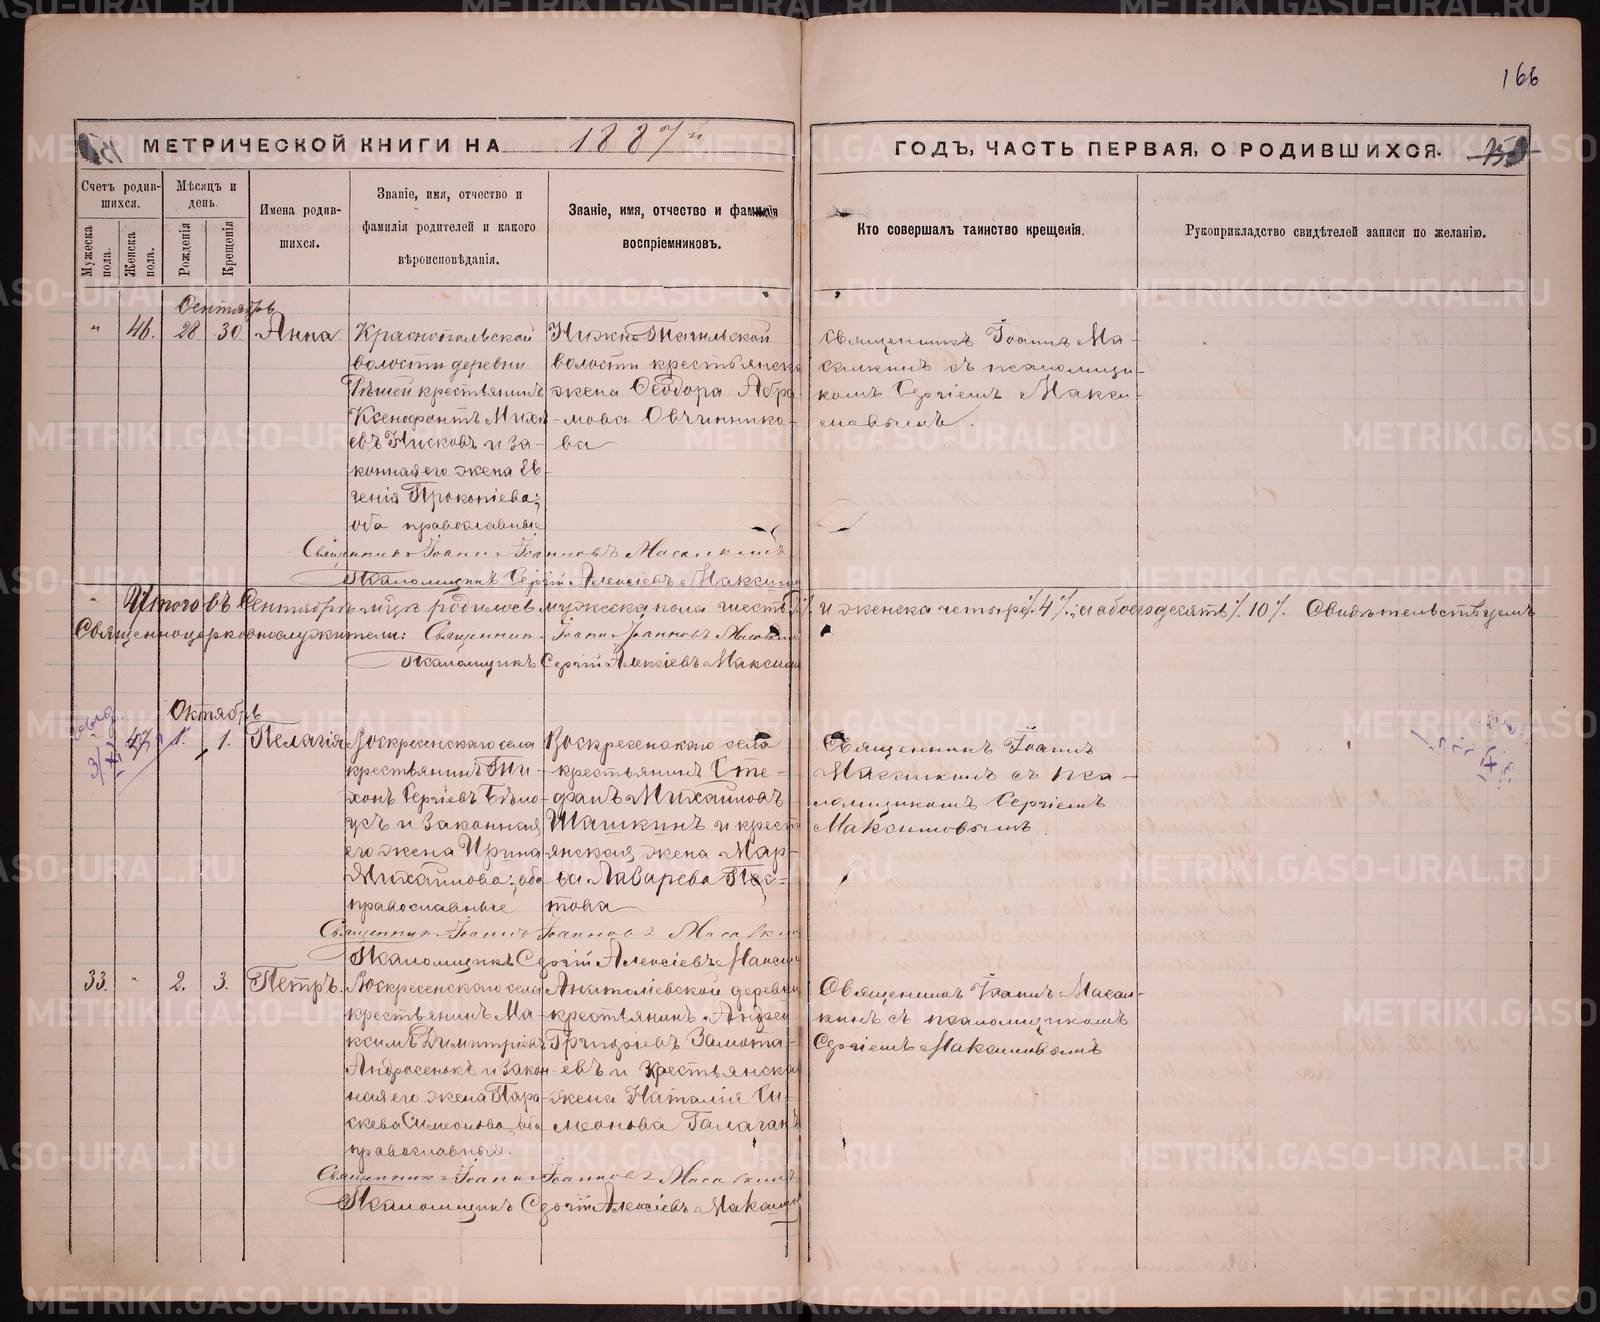 166
МЕТРИЧЕСКОЙ КНИГИ НА 1887й ГОДЪ, ЧАСТЬ ПЕРВАЯ, О РОДИВШИХСЯ.
Счетъ родив-
шихся.
Мѣсяцъ и
день.
Мужеска
пола.
Женска
пола.
Рожденія
Крещенія
Имена родив-
шихся.
Званіе, имя, отчество и
фамилія родителей и какого
вѣроисповѣданія.
Званіе, имя, отчество и фамилія
воспріемниковъ.
Кто совершалъ таинство крещенія.
Рукоприкладство свидѣтелей записи по желанію.
Сентябрь
" 46. 28. 30. Анна
Краснопольской
волости деревни
крестьянинъ
Ксенофонтъ Миха
евъ Писковъ и за-
конная его жена Ев-
генія Прокопіева;
оба православные
Нижне Тагильской
волости крестьянск
жена Ѳеодора Абра
мова Овчиннико-
ва
Священникъ Іоаннъ Ма-
салкинъ съ псаломщи-
комъ Сергіемъ Макси-
мовымъ.
Священникъ Іоаннъ Іоанновъ Масалкинъ
Псаломщикъ Сергій Алексіевъ Максим
Итого въ Сентябрѣ мцѣ родилось мужеска пола шесть и женска четыре %4%, а обоего десять %10%. Свидѣтельствуемъ
Священноцерковнослужители: Священникъ Іоаннъ Іоанновъ Масалкин
Псаломщикъ Сергій Алексіевъ Максим
Октябрь
47 1. 1. Пелагія
Воскресенскаго села
крестьянинъ Ти-
хонъ Сергіевъ Бѣло-
усъ и законная
его жена Ирина
Михайлова; оба
православные
Воскресенскаго села
крестьянинъ Сте-
фанъ Михайловъ
Шашкинъ и крест
янская жена Мар-
ѳа Лазарева Пес-
това
Священникъ Іоаннъ
Масалкинъ съ пса-
ломщикомъ Сергіемъ
Максимовымъ.
Священникъ Іоаннъ Іоанновъ Масалкин
Псаломщикъ Сергій Алексіевъ Максим
33. " 2. 3. Петръ.
Воскресенскаго села
крестьянинъ Ма-
ксимъ Димитріевъ
Андросенокъ и закон-
ная его жена Пара-
скева Симеонова, оба
православные.
Анатоліевской деревни
крестьянинъ Андрей
Григоріевъ Замота-
евъ и крестьянская
жена Наталія Си-
меонова Галаганъ
Священникъ Іоаннъ Масал-
кинъ съ псаломщикомъ
Сергіемъ Максимовымъ
Священникъ Іоаннъ Іоанновъ Масалкинъ
Псаломщикъ Сергій Алексіевъ Максимо
METRIKI.GASO-URAL.RU